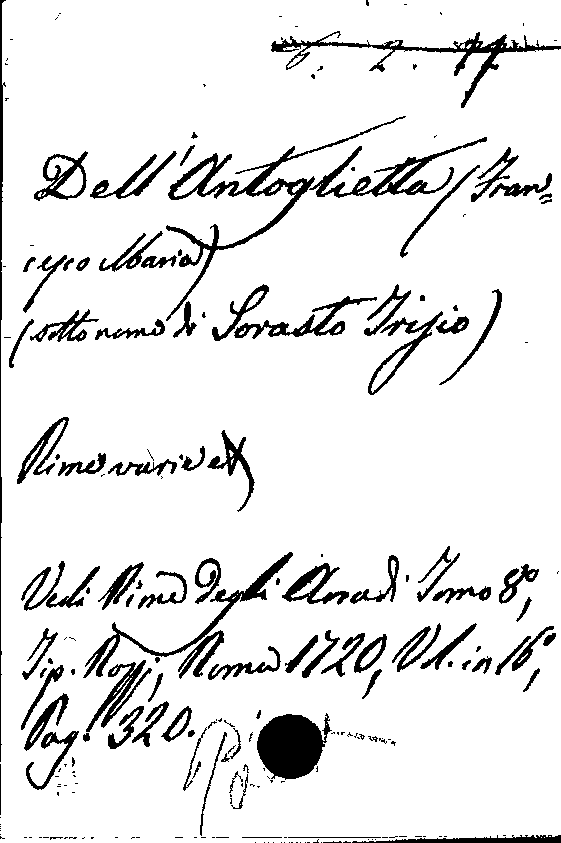 6. 2. 77
Dell'Antoglietta (Fran=
cesco Maria)
(sotto nome di Sorasto Trisio)
Rime varie
Vedi Rime degli Arcadi Tomo 8º,
Tip. Rossi, Roma 1720, Vol. in 16º,
Pag. 320.